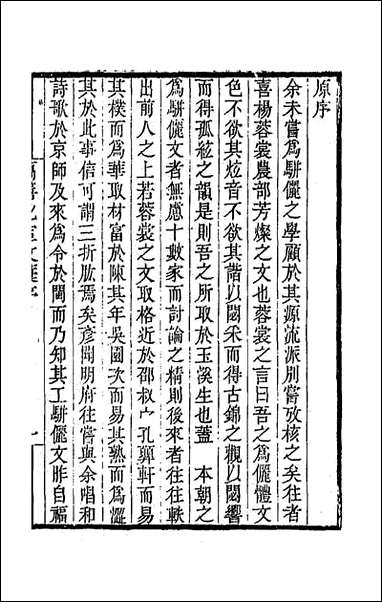 原序
余未嘗爲駢儷之學顧於其源流派別嘗攷核之矣往者
喜楊蓉裳農部芳燦之文也蓉裳之言曰吾之爲儷體文
色不欲其炫音不欲其諧以閟采而得古錦之觀以閟響
而得孤絃之韻是則吾之所取於玉溪生也蓋　本朝之
爲駢儷文者無慮十數家而討論之精則後來者往往軼
出前人之上若蓉裳之文取格近於邵叔宀孔顨軒而易
其樸而爲華取材富於陳其年吳園次而易其熟而爲澀
其於此事信可謂三折肱焉矣彥聞明府往嘗與余唱和
詩歌於京師及來爲令於閩而乃知其工駢儷文昨自福